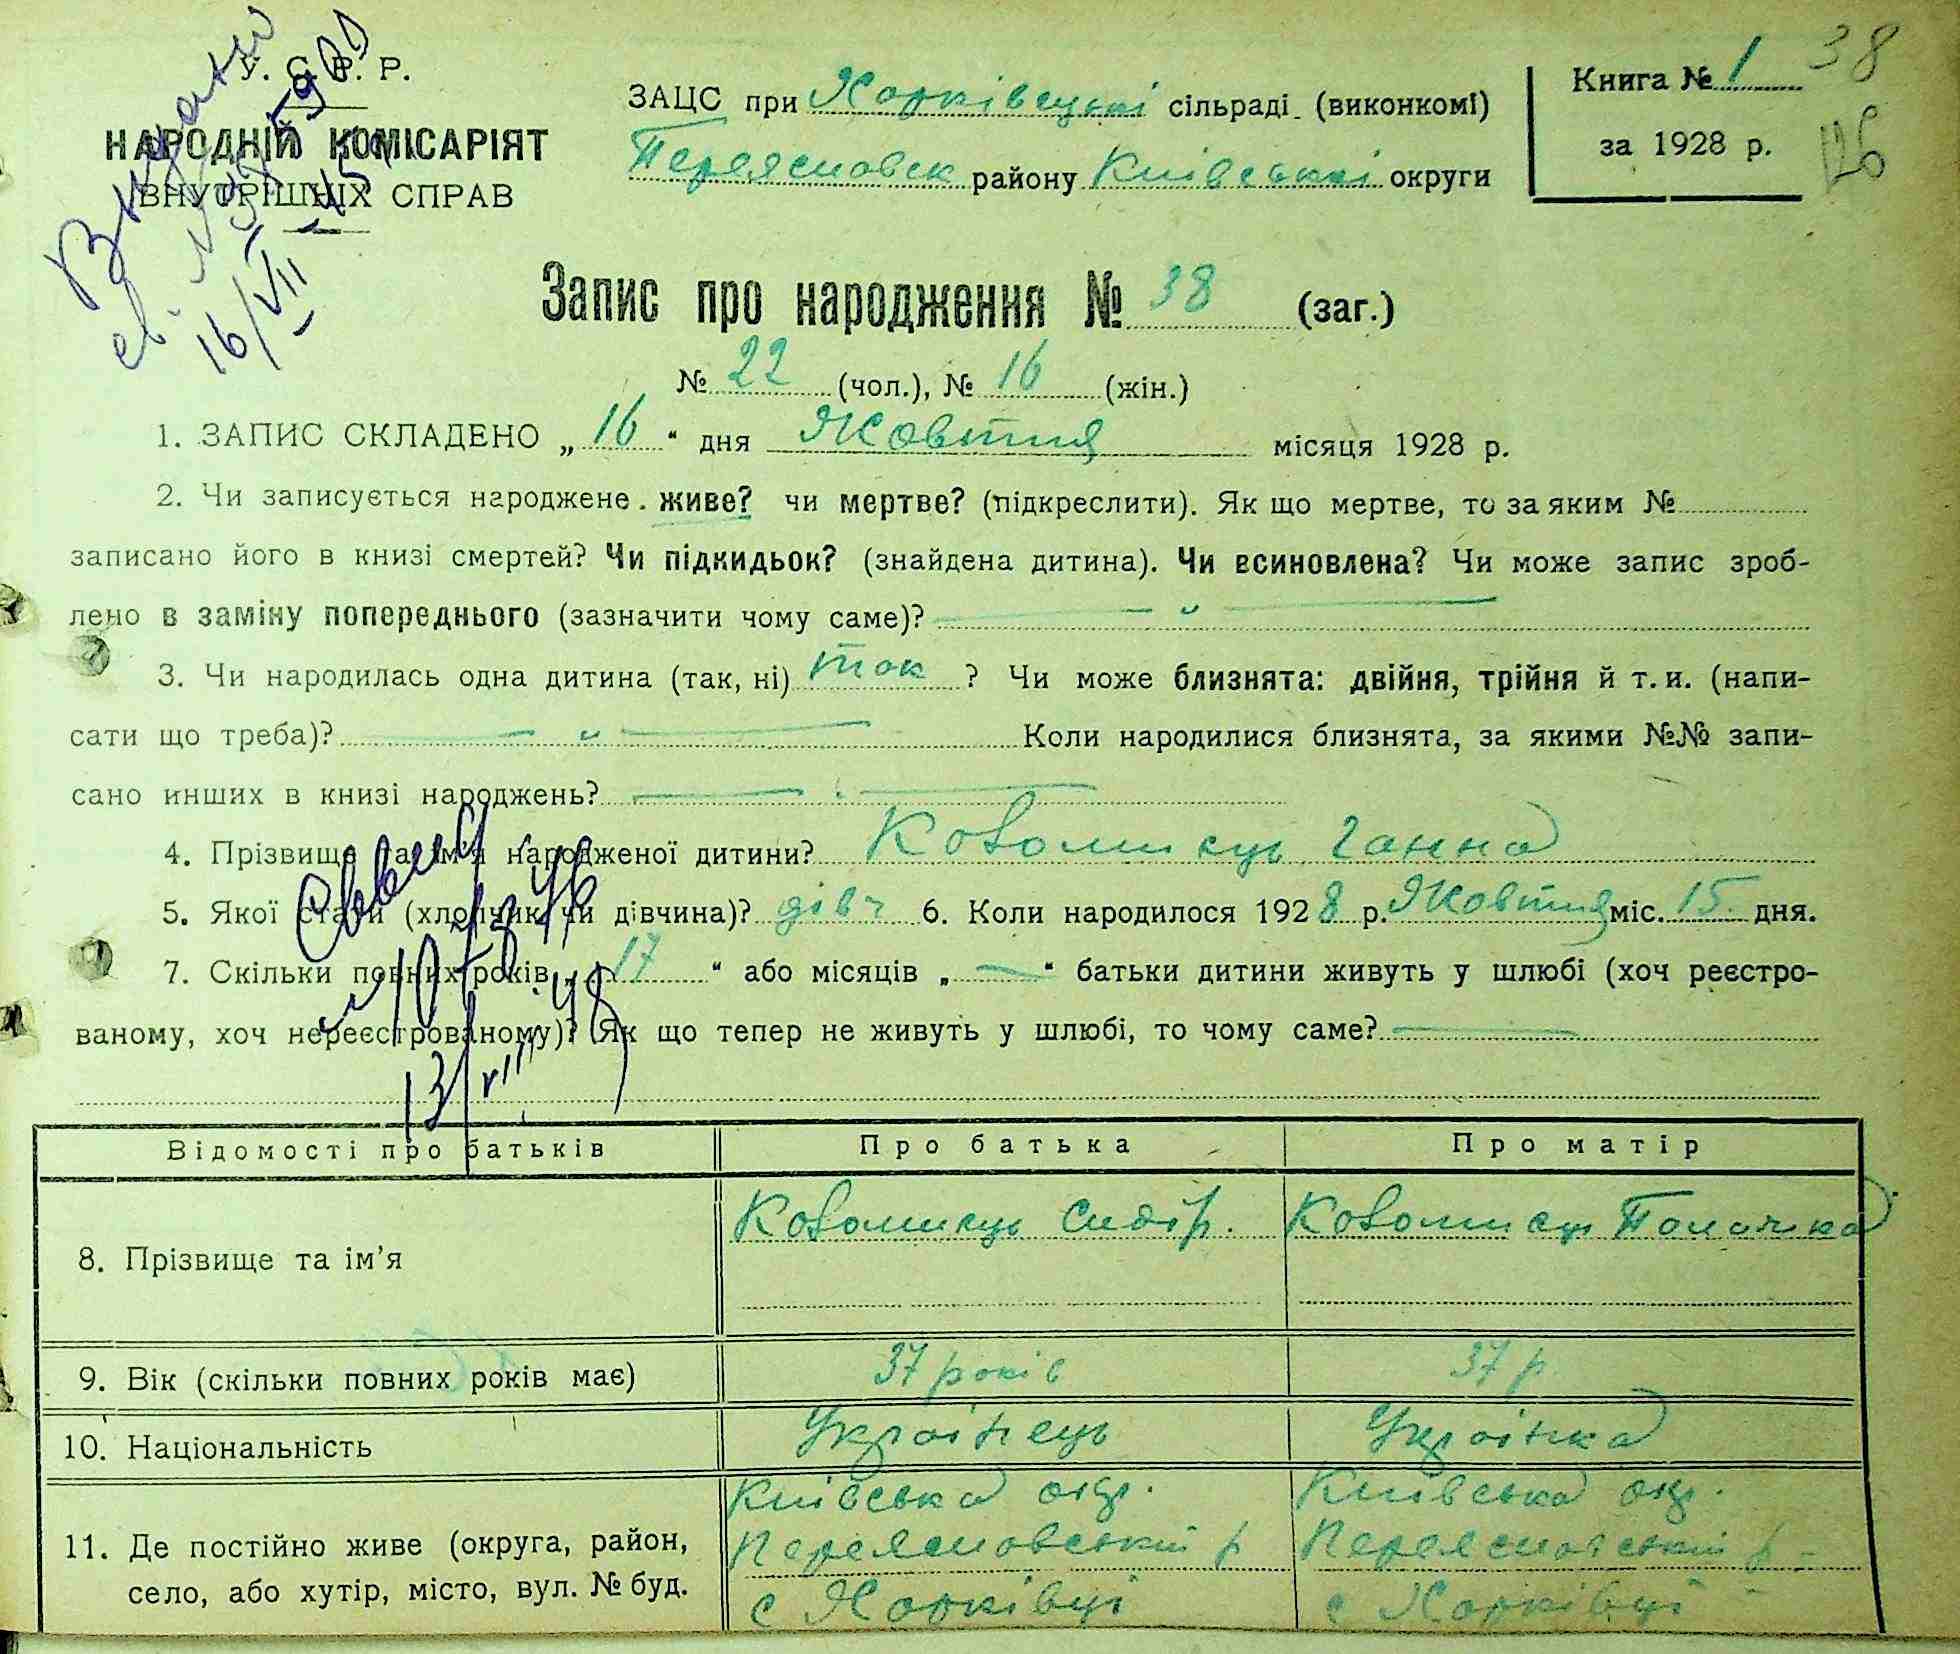 У. С. Р. Р.
НАРОДНІЙ КОМІСАРІЯТ
ВНУТРІШНІХ СПРАВ
ЗАЦС при Харківецькі сільраді (виконкомі)
Переясловск району Київської округи
Книга № 1
за 1928 р.
38
126
16/VII
Запис про народження № 38 (заг.)
№ 22 (чол.), № 16 (жін.)
1. ЗАПИС СКЛАДЕНО „ 16 “ дня Жовтня місяця 1928 р.
2. Чи записується народжене живе? чи мертве? (підкреслити). Як що мертве, то за яким №
записано його в книзі смертей? Чи підкидьок? (знайдена дитина). Чи всиновлена? Чи може запис зроб-
лено в заміну попереднього (зазначити чому саме)? — „ —
3. Чи народилась одна дитина (так, ні) так ? Чи може близнята: двійня, трійня й т. и. (напи-
сати що треба)? — „ — Коли народилися близнята, за якими №№ запи-
сано инших в книзі народжень? — „ —
4. Прізвище та ім’я народженої дитини? Коломиєць Ганна
5. Якої статі (хлопчик чи дівчина)? дівч 6. Коли народилося 1928 р. Жовтня міс. 15 дня.
7. Скільки повних років „ 17 “ або місяців „ — “ батьки дитини живуть у шлюбі (хоч реєстро-
ваному, хоч нереєстрованому)? Як що тепер не живуть у шлюбі, то чому саме? —
Відомості про батьків Про батька Про матір
8. Прізвище та ім’я Коломиєць Сидір. Коломиєць Палажка
9. Вік (скільки повних років має) 37 років 37 р
10. Національність Українець Українка
Київська окр. Київська окр.
11. Де постійно живе (округа, район, Переясловський р Переясловський р
село, або хутір, місто, вул. № буд. с Харківці с Харківці